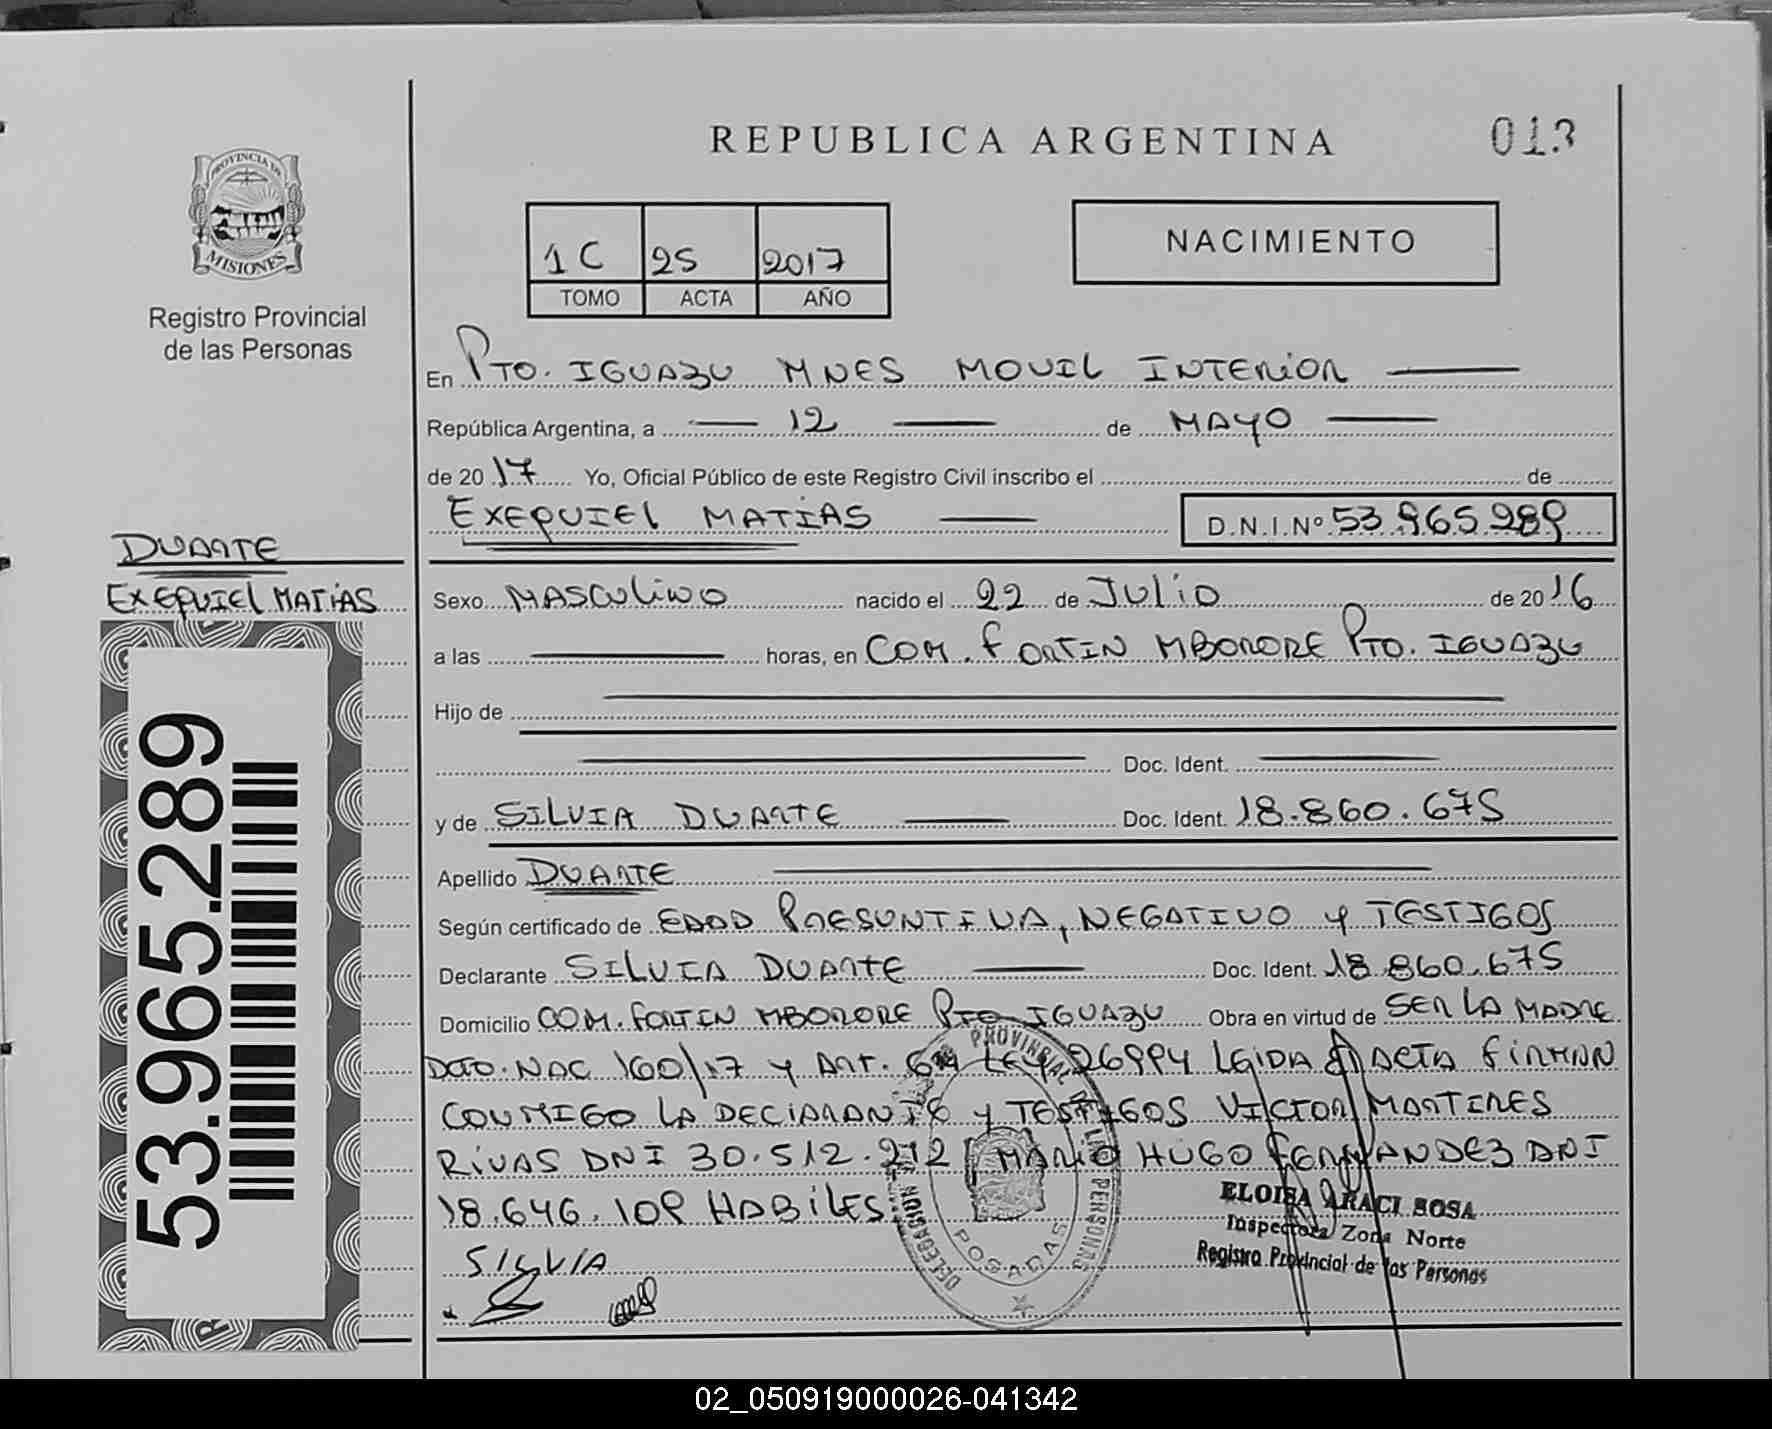 REPUBLICA ARGENTINA
013
PROVINCIA DE
MISIONES
Registro Provincial
de las Personas
1C 25 2017
TOMO ACTA AÑO
NACIMIENTO
En PTO. IGUAZU MNES MOVIL INTERIOR
República Argentina, a 12 de MAYO
de 2017 Yo, Oficial Público de este Registro Civil inscribo el de
EXEQUIEL MATIAS D.N.I.Nº 53.965.289
DUARTE
EXEQUIEL MATIAS
53.965.289
Sexo MASCULINO nacido el 22 de JULIO de 2016
a las horas, en COM. FORTIN MBORORE PTO. IGUAZU
Hijo de
Doc. Ident.
y de SILVIA DUARTE Doc. Ident. 18.860.675
Apellido DUARTE
Según certificado de EDAD PRESUNTIVA, NEGATIVO Y TESTIGOS
Declarante SILVIA DUARTE Doc. Ident. 18.860.675
Domicilio COM. FORTIN MBORORE PTO IGUAZU Obra en virtud de SER LA MADRE
DCTO. NAC 160/17 Y ART. LEY 26994 LEIDA EL ACTA FIRMAN
CONMIGO LA DECLARANTE Y TESTIGOS VICTOR MARTINES
RIVAS DNI 30.512.212 MARIO HUGO FERNANDEZ DNI
18.646.109 HABILES
SILVIA
PROVINCIAL DE LAS PERSONAS
DELEGACION
POSADAS
ELOISA ARACI SOSA
Inspectora Zona Norte
Registro Provincial de las Personas
02_050919000026-041342